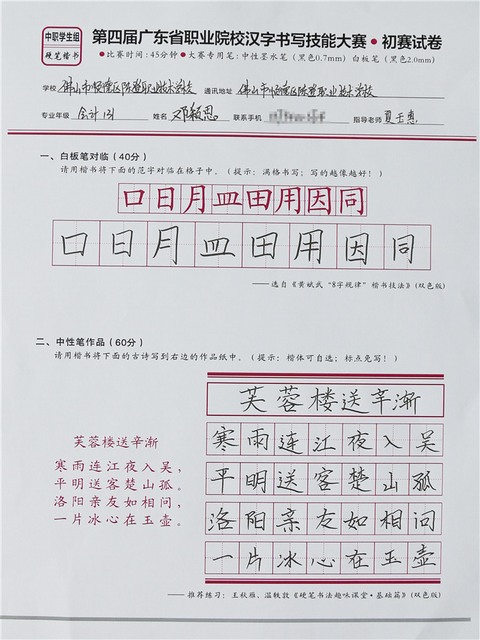 中职学生组
硬笔楷书
第四届广东省职业院校汉字书写技能大赛•初赛试卷
●比赛时间:45分钟●大赛专用笔:中性墨水笔(黑色0.7mm)白板笔(黑色2.0mm)
学校 佛山市顺德区陈登职业技术学校 通讯地址 佛山市顺德区陈登职业技术学校
专业年级 会计131 姓名 邓颖恩 联系手机 指导老师 夏玉惠
一、白板笔对临(40分)
请用楷书将下面的范字对临在格子中。(提示:满格书写;写的越像越好!)
口日月皿田用因同
口日月皿田用因同
——选自《黄斌武“8字规律”楷书技法》(双色版)
二、中性笔作品(60分)
请用楷书将下面的古诗写到右边的作品纸中。(提示:楷体可自选;标点免写!)
芙蓉楼送辛渐
寒雨连江夜入吴,
平明送客楚山孤。
洛阳亲友如相问,
一片冰心在玉壶。
芙蓉楼送辛渐
寒雨连江夜入吴
平明送客楚山孤
洛阳亲友如相问
一片冰心在玉壶
——推荐练习:王秋雁、温轶敦《硬笔书法趣味课堂·基础篇》(双色版)